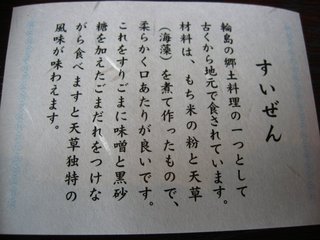 すいぜん
輪島の郷土料理の一つとして
古くから地元で食されています。
材料は、もち米の粉と天草
（海藻）を煮て作ったもので、
柔らかく口あたりが良いです。
これをすりごまに味噌と黒砂
糖を加えたごまだれをつけな
がら食べますと天草独特の
風味が味わえます。